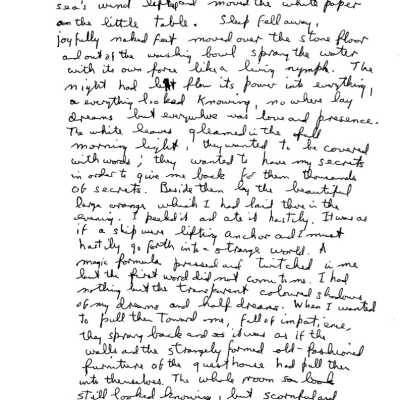 sea's wind leapt and moved the white paper
on the little table. Sleep fell away,
joyfully naked feet moved over the stone floor
and out of the washing bowl sprang the water
with its own force like a living nymph. The
night had let flow its power into everything,
a everything looked knowing, nowhere lay
dreams but everywhere was love and presence.
The white leaves gleamed in the full
morning light, they wanted to be covered
with words; they wanted to have my secrets
in order to give me back for them thousands
of secrets. Beside them lay the beautiful
large orange which I had laid there in the
evening. I peeled it ad ate it hastily. It was as
if a ship were lifting anchor and I must
hastily go forth into a strange world. A
magic formula pressed and twitched in me
but the first word did not come to me. I had
nothing but the transparent coloured shadows
of my dreams and half dreams. When I wanted
to pull them toward me, full of impatience,
they sprang back and it was as if the
walls and the strangely formed old-fashioned
furniture of the guesthouse had pull them
into themselves. The whole room look
still looked knowing, but scornful and